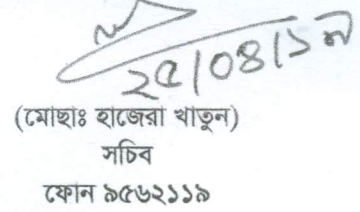 ২৫/০৪/১৭
(মোছাঃ হাজেরা খাতুন)
সচিব
ফোন ৯৫৬২১১৯